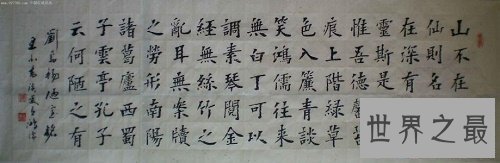 山不在
仙則名
在深有
靈斯是
惟吾德馨
痕上階綠草
色入簾青談
笑鴻儒往來
無白丁可以
調素琴閱金
經無絲竹之
亂耳無案牘
之勞形南陽
諸葛廬西蜀
子雲亭孔子
云何陋之有
劉禹錫陋室銘
世界之最